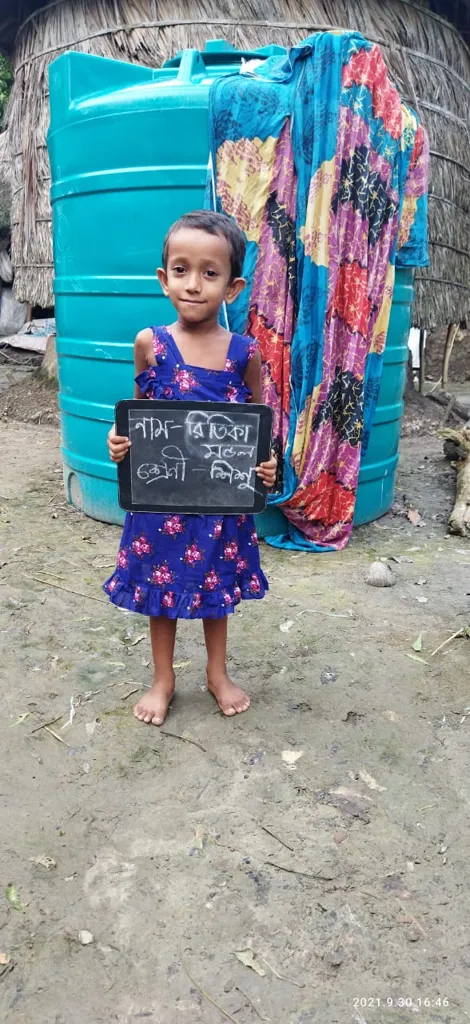 নাম- রিতিকা
মন্ডল
শ্রেণী - শিশু
2021.9.30 16:46